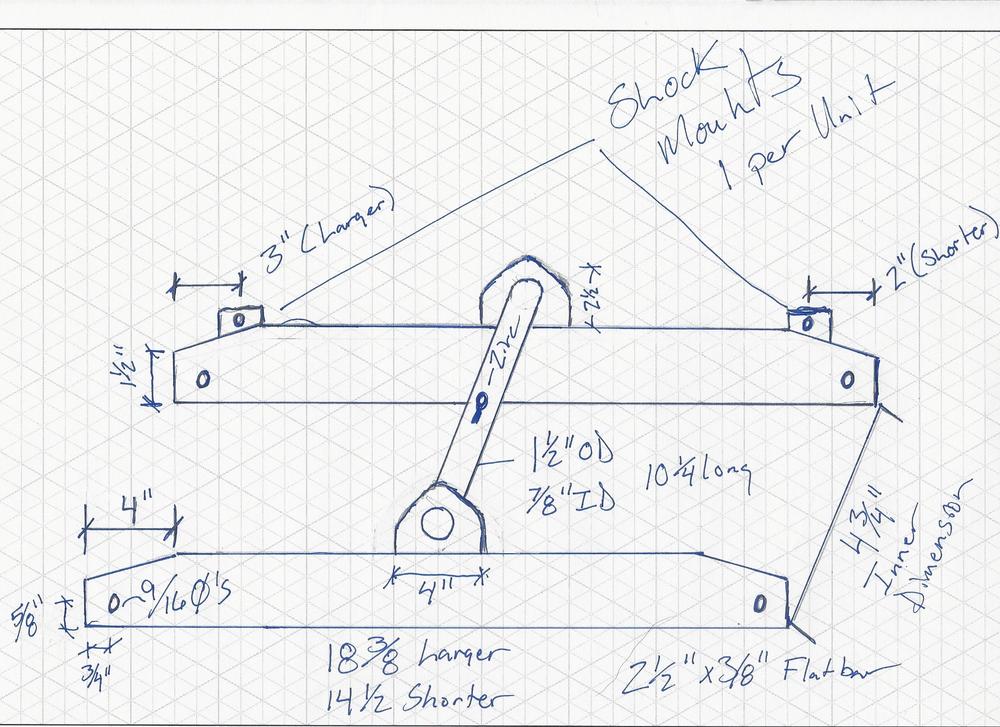 Shock
Mounts
1 per Unit
3" (Larger)
2" (Shorter)
2½
1½"
Zirc
1½" OD
7/8" ID
10 ¼ long
4"
4 ¾"
Inner
Dimension
9/16 Ø's
5/8"
4"
¾"
18 3/8 Larger
14 ½ Shorter
2½" x 3/8" Flatbar